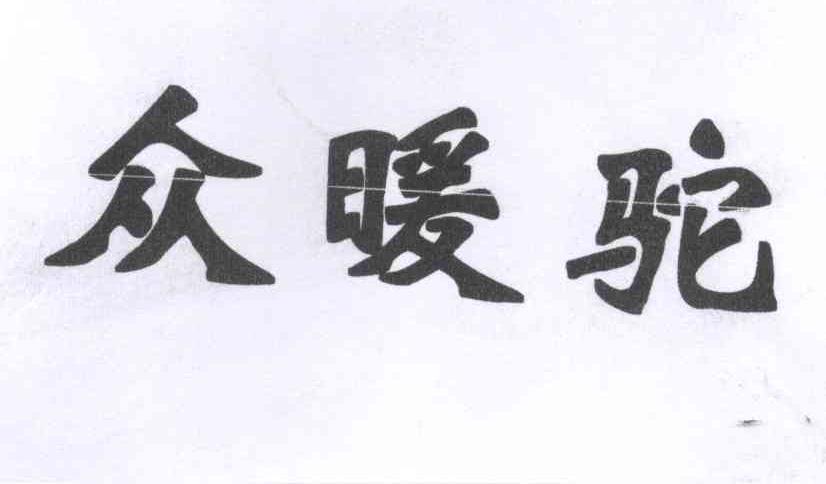 众暖驼